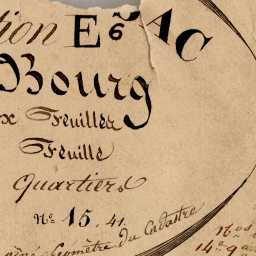 tion E 6 AC
Bourg
x Feuilles
Feuille
Quartiers
N.º 15. 41.
Géomètre du Cadastre
Nos
14.e